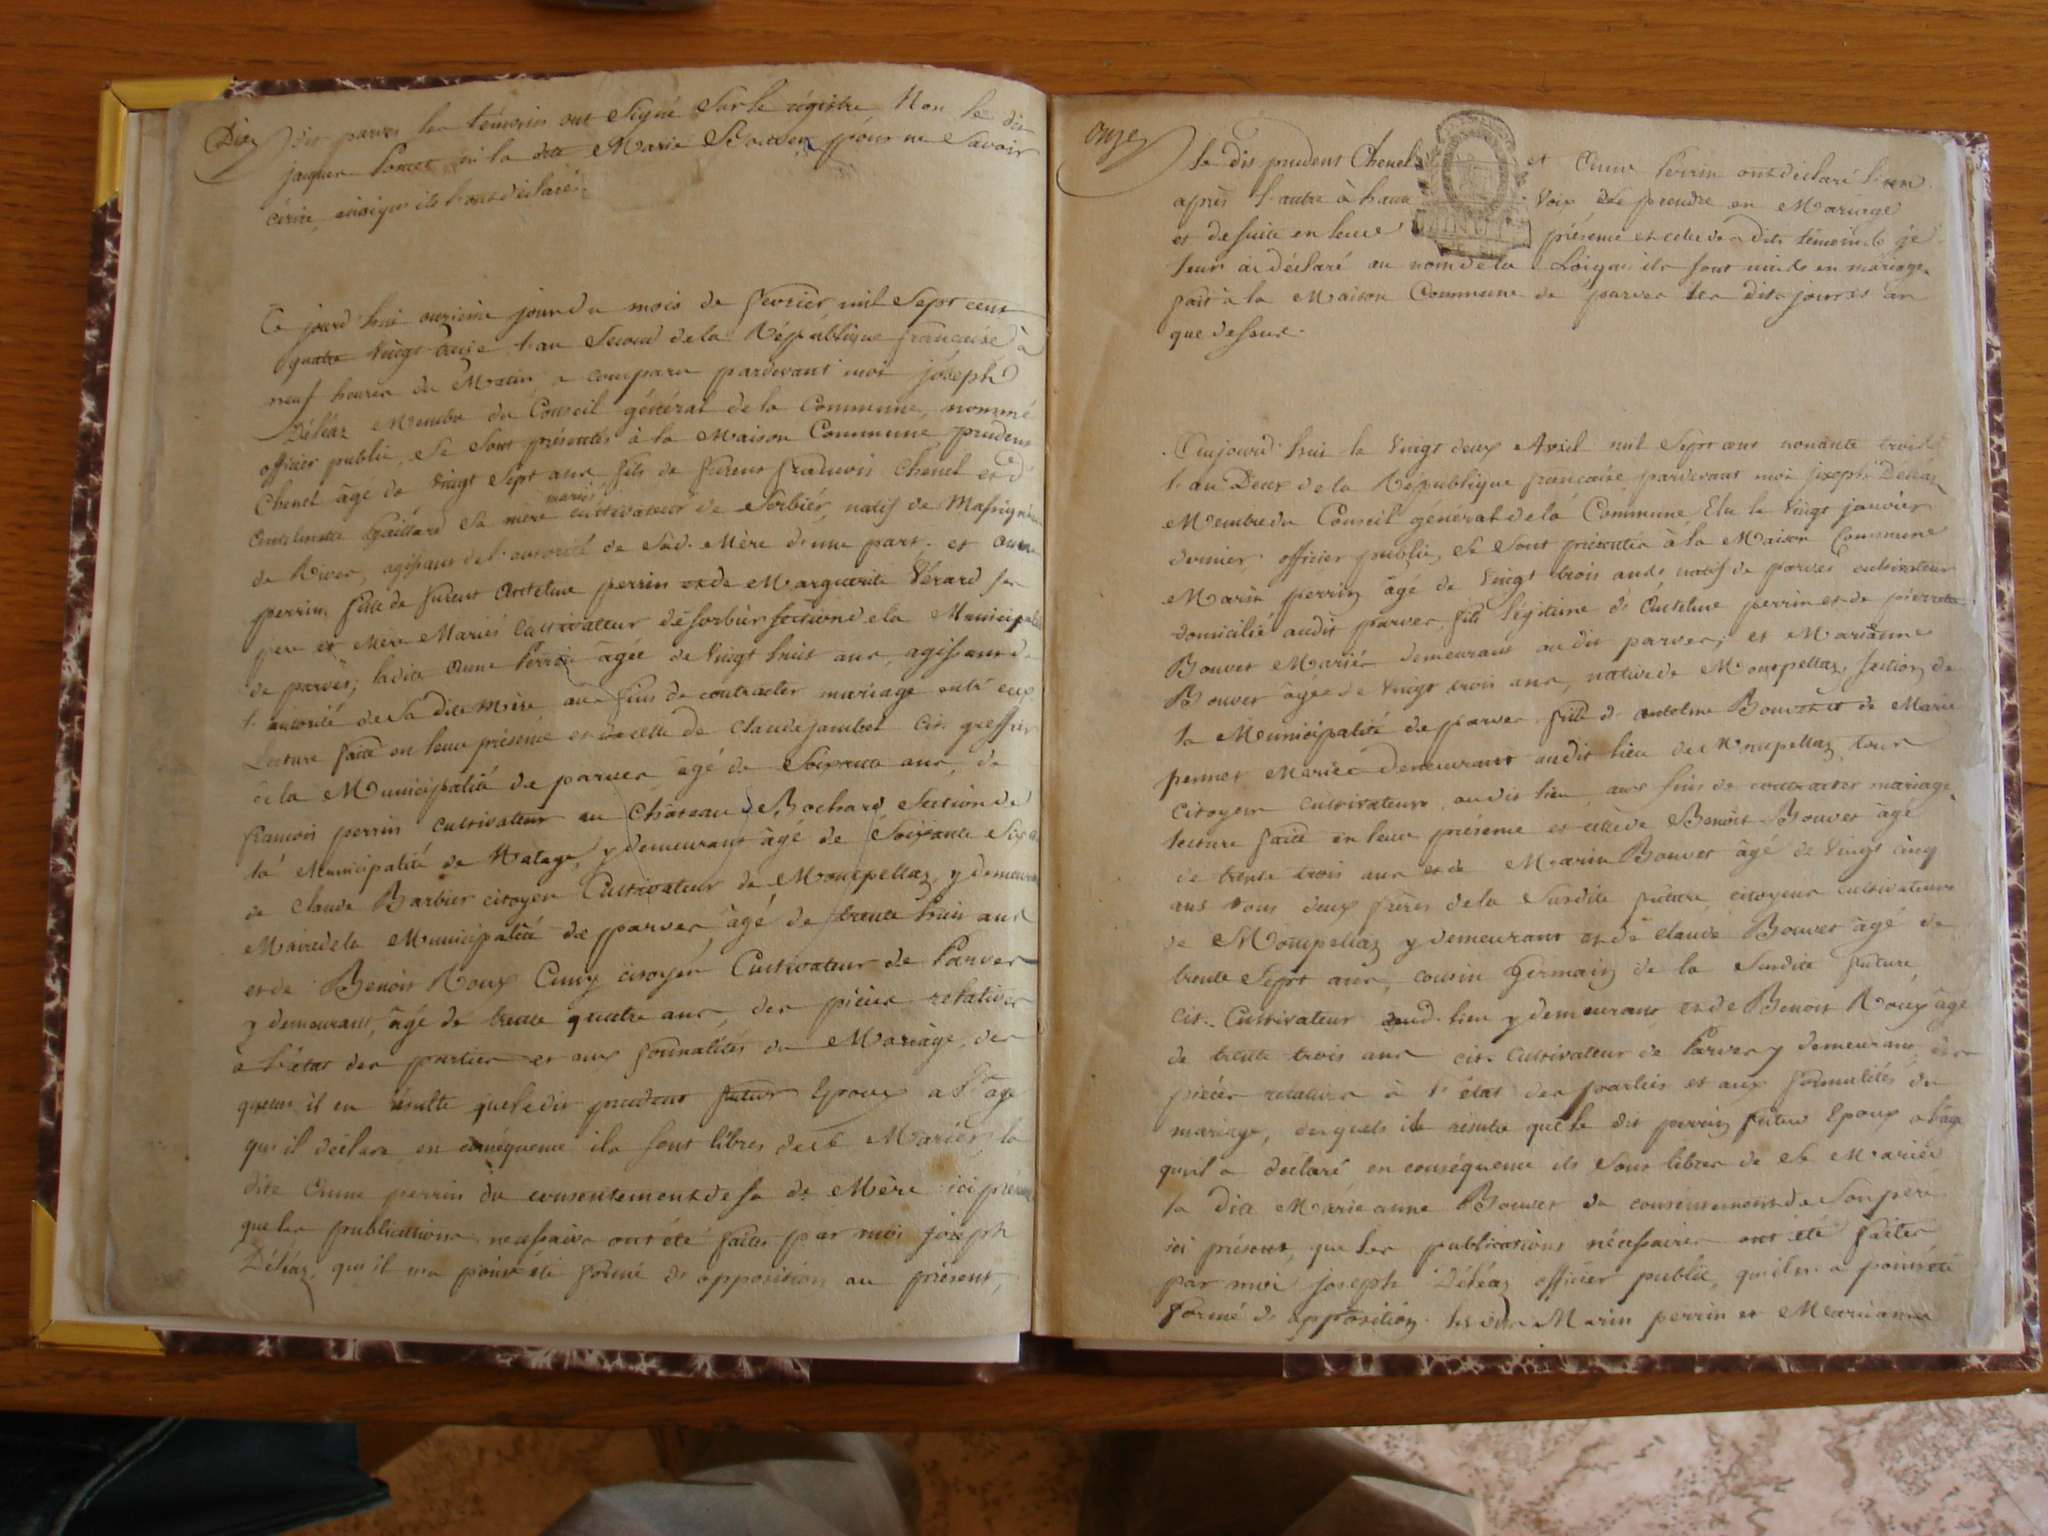 Dix
dit parves les témoins ont Signé Sur le régistre Non le dit
jaques Poncet ni la dite Marie pour ne Savoir
écrire ainsique ils l'ont déclaré.
Ce jourd'hui onzieme jour du mois de fevrier mil Sept cent
quatre vingt l'an Second de la République française à
neuf heures du Matin a comparu pardevant moi joseph
Déléaz Membre du Conseil général de la Commune, nommé
officier public, Se Sont présentés à la Maison Commune prudent
Chenel âgé de vingt Sept ans fils de François Chenel et d'
gaillard Sa mère mariés cultivateur de Sorbier, natif de
de River, agissant de l'autorité de Sad. Mère d'une part. et Anne
perrin, fille de Antelme perrin et de Marguerite Vérard Ses
pere et Mère Mariés Cultivateur de Sorbier Section de la Municipalité
de parves; ladite Anne Perrin âgée de vingt huit ans, agissant de
l'autorité de Sa dite Mère aux fins de contracter mariage entr'eux
Lecture faite en leur présence et de celle de Claude jambet Cit. greffier
de la Municipalité de parves âgé de Soixante ans, de
francois perrin cultivateur au Château de Bochard Section de
la Municipalité de Natage, y demeurant âgé de Soixante Six ans
de Claude Barbier citoyen Cultivateur de Montpellaz, y demeurant
Maire de la Municipalité de parves âgé de trente huit ans
et de Benoit Roux Cuny citoyen Cultivateur de Parves
y demeurant, âgé de trente quatre ans, des pieces relatives
à l'état des parties et aux formalités du Mariage, des
quelles il en résulte que le dit prudent futur Epoux a l'âge
qu'il déclare en conséquence ils sont libres de se Marier la
dite Anne perrin du consentement de sa de Mère ici présente
que les publications necessaires ont été faites par moi joseph
Déléaz, qu'il n'a point été formé d'opposition au présent,
onze
le dit prudent Chenel et Anne Perrin ont déclaré l'un
après l'autre à haute Voix Se prendre en Mariage
et de suite en leur présence et celle des dits témoins je
leur ai déclaré au nom de la Loi qu'ils sont unis en mariage
fait à la Maison Commune de parves les dits jours et an
que dessus.
Aujourd'hui le vingt deux Avril mil Sept cent nonante trois
l'an Deux de la République française pardevant moi joseph Déléaz
Membre du Conseil général de la Commune, Elu le vingt janvier
dernier officier public, Se Sont présentés à la Maison Commune
Marin perrin âgé de vingt trois ans natif de parves cultivateur
domicilié audit parves, fils légitime d'Antelme perrin et de pierrette
Bouvet Mariés demeurant audit parves; et Marianne
Bouvet âgée de vingt trois ans, native de Montpellaz, Section de
la Municipalité de parves fille d'antelme Bouvet et de Marie
pernet Mariés Demeurant audit lieu de Monpellaz, tous
Citoyens cultivateurs, audit lieu aux fins de contracter mariage
lecture faite en leur présence et celle de Benoit Bouvet âgé
de trente trois ans et de Marin Bouvet âgé de vingt cinq
ans tous deux frères de la Susdite future, citoyens cultivateurs
de Monpellaz y demeurant et de Claude Bouvet âgé de
trente Sept ans, cousin Germain de la Susdite future
cit. Cultivateur aud. lieu y demeurant et de Benoit Roux âgé
de trente trois ans cit. Cultivateur de Parves y demeurant des
pièces relatives à l'état des parties et aux formalités du
mariage, desquels il résulte que le dit perrin futur Epoux a l'âge
qu'il a déclaré en conséquence ils Sont libres de Se Marier
la dite Marie anne Bouvet du consentement de Son pere
ici présent, que les publications nécessaires ont été faites
par moi joseph Déléaz officier public, qu'il n'a point été
formé d'opposition. les dits Marin perrin et Marianne